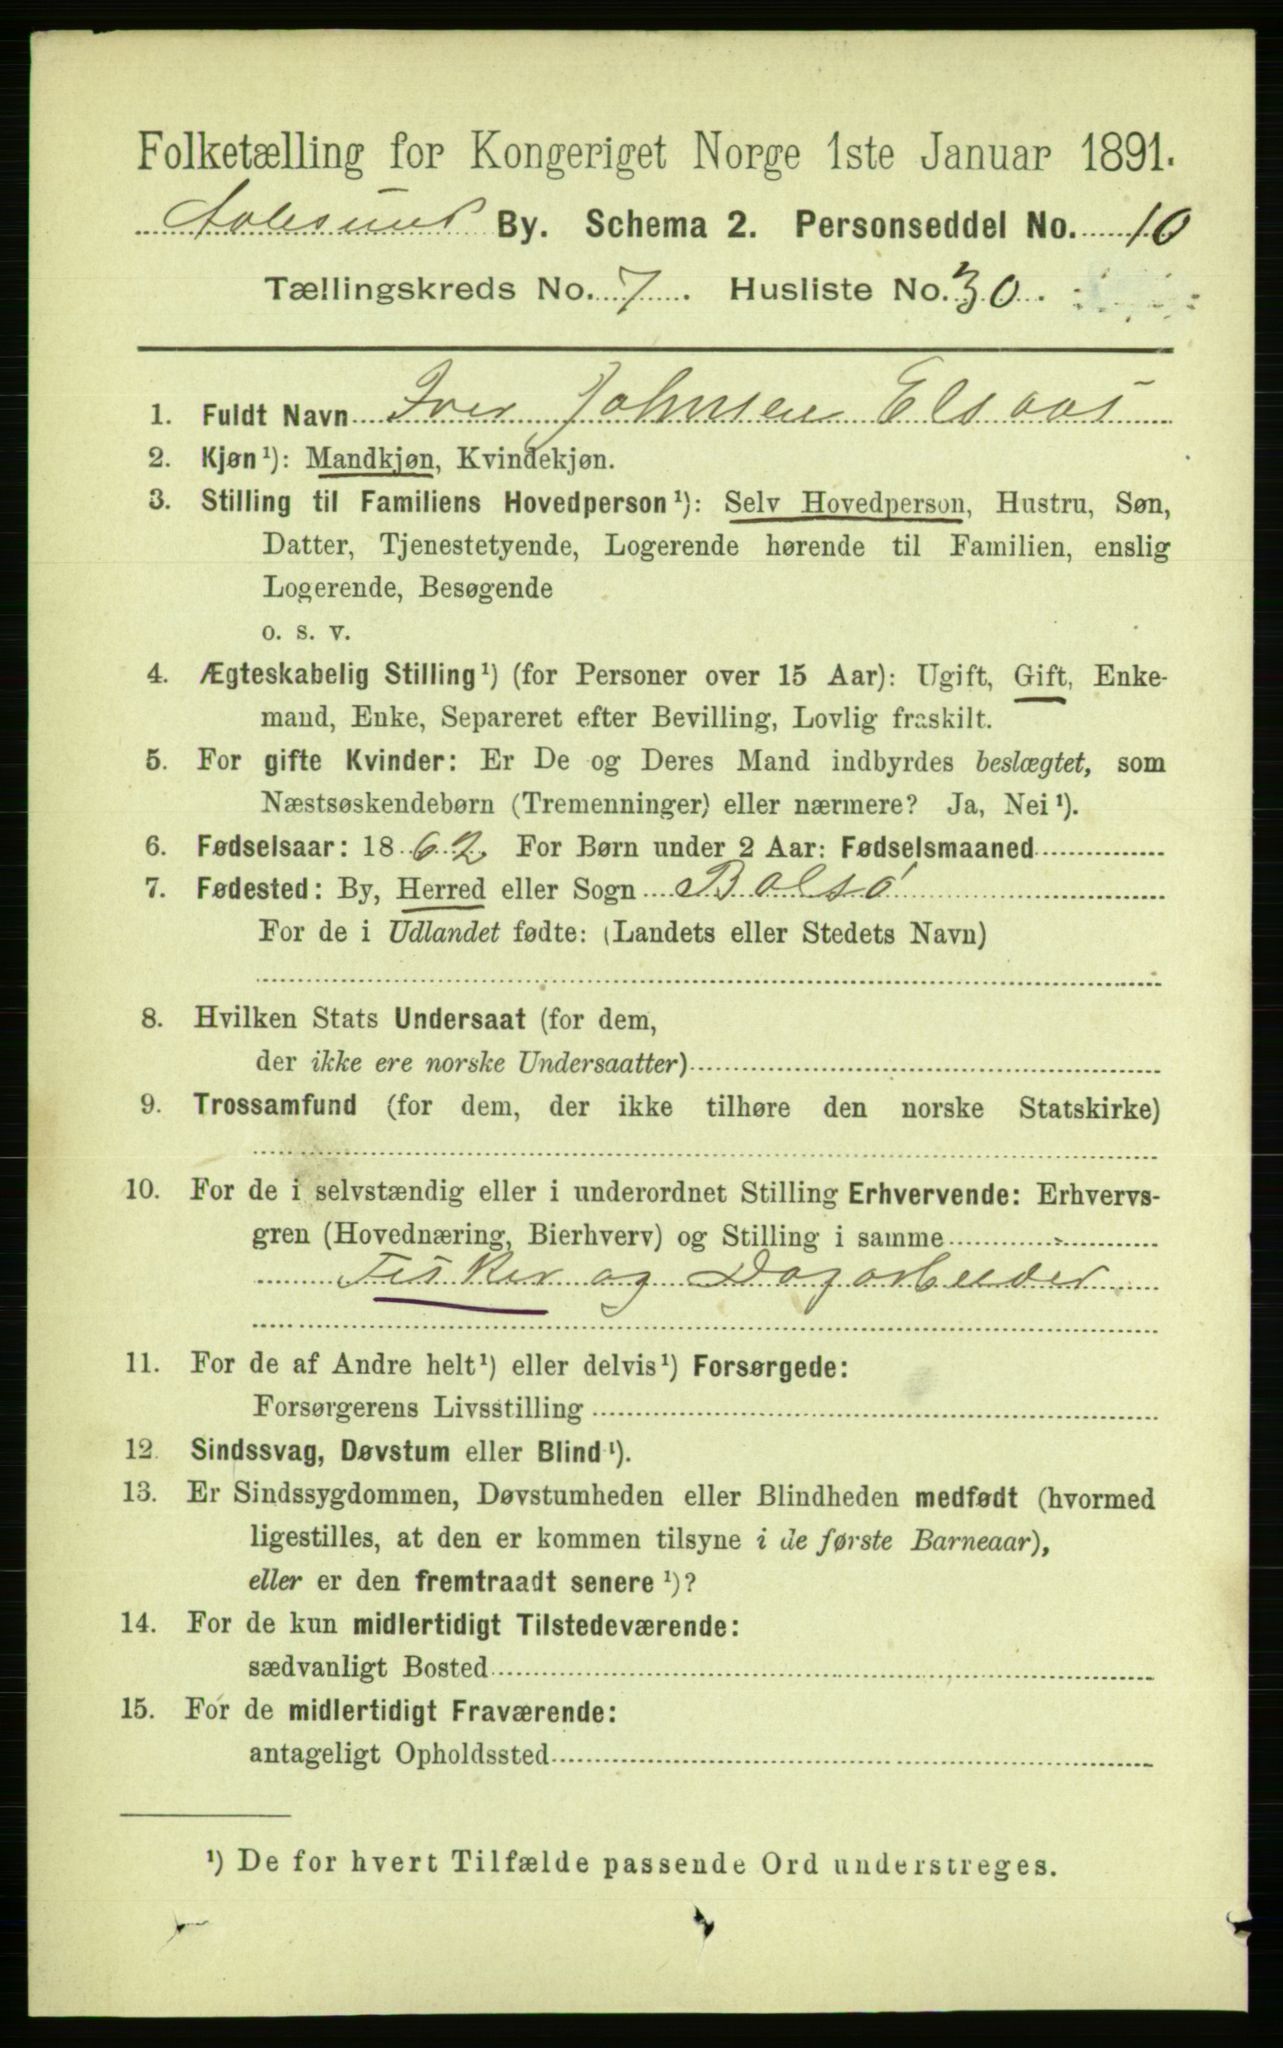 Folketælling for Kongeriget Norge 1ste Januar 1891.
Aalesund By. Schema 2. Personseddel No. 10
Tællingskreds No. 7. Husliste No. 30.
1. Fuldt Navn Iver Johnsen Elsaas
2. Kjøn¹): Mandkjøn, Kvindekjøn.
3. Stilling til Familiens Hovedperson¹): Selv Hovedperson, Hustru, Søn,
Datter, Tjenestetyende, Logerende hørende til Familien, enslig
Logerende, Besøgende
o. s. v.
4. Ægteskabelig Stilling¹) (for Personer over 15 Aar): Ugift, Gift, Enke-
mand, Enke, Separeret efter Bevilling, Lovlig fraskilt.
5. For gifte Kvinder: Er De og Deres Mand indbyrdes beslægtet, som
Næstsøskendebørn (Tremenninger) eller nærmere? Ja, Nei¹).
6. Fødselsaar: 1862 For Børn under 2 Aar: Fødselsmaaned
7. Fødested: By, Herred eller Sogn Bolsø
For de i Udlandet fødte: (Landets eller Stedets Navn)
8. Hvilken Stats Undersaat (for dem,
der ikke ere norske Undersaatter)
9. Trossamfund (for dem, der ikke tilhøre den norske Statskirke)
10. For de i selvstændig eller i underordnet Stilling Erhvervende: Erhvervs-
gren (Hovednæring, Bierhverv) og Stilling i samme
Fisker og Dagarbeider
11. For de af Andre helt¹) eller delvis¹) Forsørgede:
Forsørgerens Livsstilling
12. Sindssvag, Døvstum eller Blind¹).
13. Er Sindssygdommen, Døvstumheden eller Blindheden medfødt (hvormed
ligestilles, at den er kommen tilsyne i de første Barneaar),
eller er den fremtraadt senere¹)?
14. For de kun midlertidigt Tilstedeværende:
sædvanligt Bosted
15. For de midlertidigt Fraværende:
antageligt Opholdssted
¹) De for hvert Tilfælde passende Ord understreges.